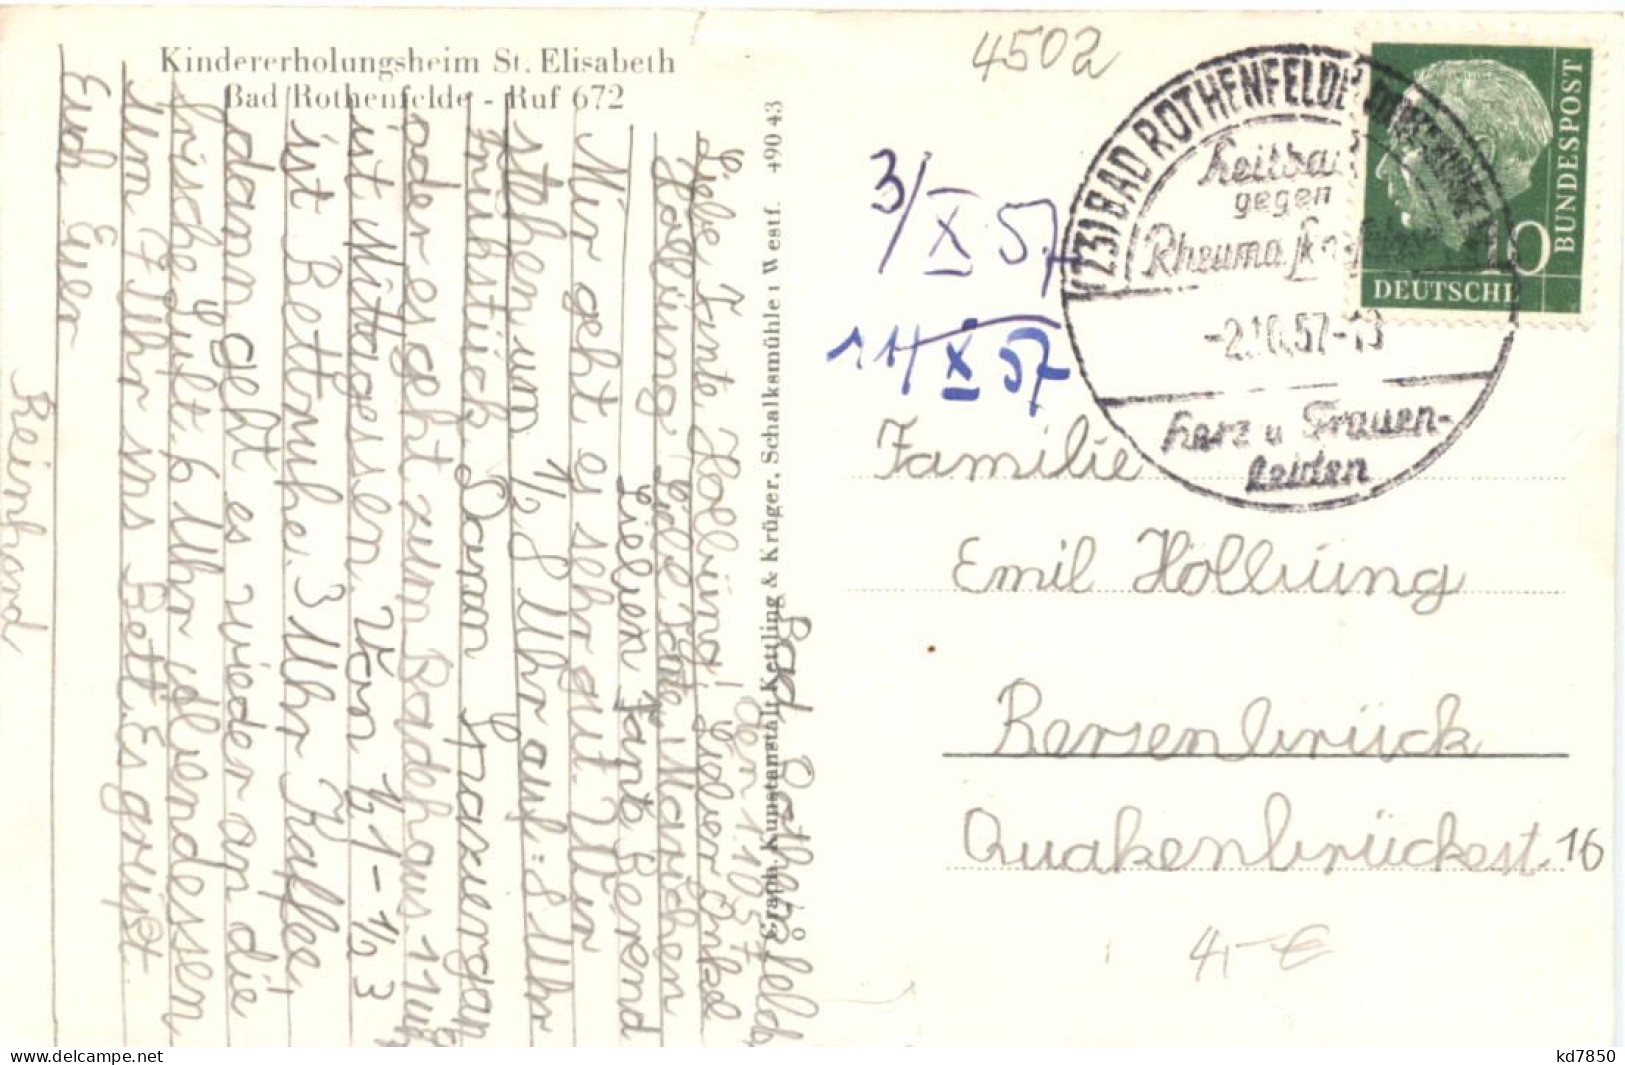 Kindererholungsheim St. Elisabeth
Bad Rothenfelde - Ruf 672
Graph. Kunstanstalt Kettling & Krüger, Schalksmühle i. Westf. 490 43
Bad Rothenfeld
den 1.10.57
Liebe Tante Hollbüng! Lieber Onkel
Hollbüng. Liebe Tante Mariechen
Lieben Tante Berend
Mir geht es sehr gut. Wir
stehen um 1/2 8 Uhr auf. 8 Uhr
Frühstück. Dann Spaziergan
oder es geht zum Badehaus. 11 Uhr
ist Mittagessen. Von 1/2 1 - 1/2 3
ist Bettruhe. 3 Uhr Kaffee,
dann geht es wieder an die
frische Luft. 6 Uhr Abendessen
Um 7 Uhr ins Bett. Es grüßt
Euch Euer
Reinhard
4502
3/X 57
11/X 57
(23) BAD ROTHENFELDE
Heilbad
gegen
Rheuma
-2.10.57-13
Herz u Frauen-
leiden
10
DEUTSCHE
BUNDESPOST
Familie
Emil Hollbüng
Bersenbrück
Quakenbrückest. 16
4,- €
kd7850